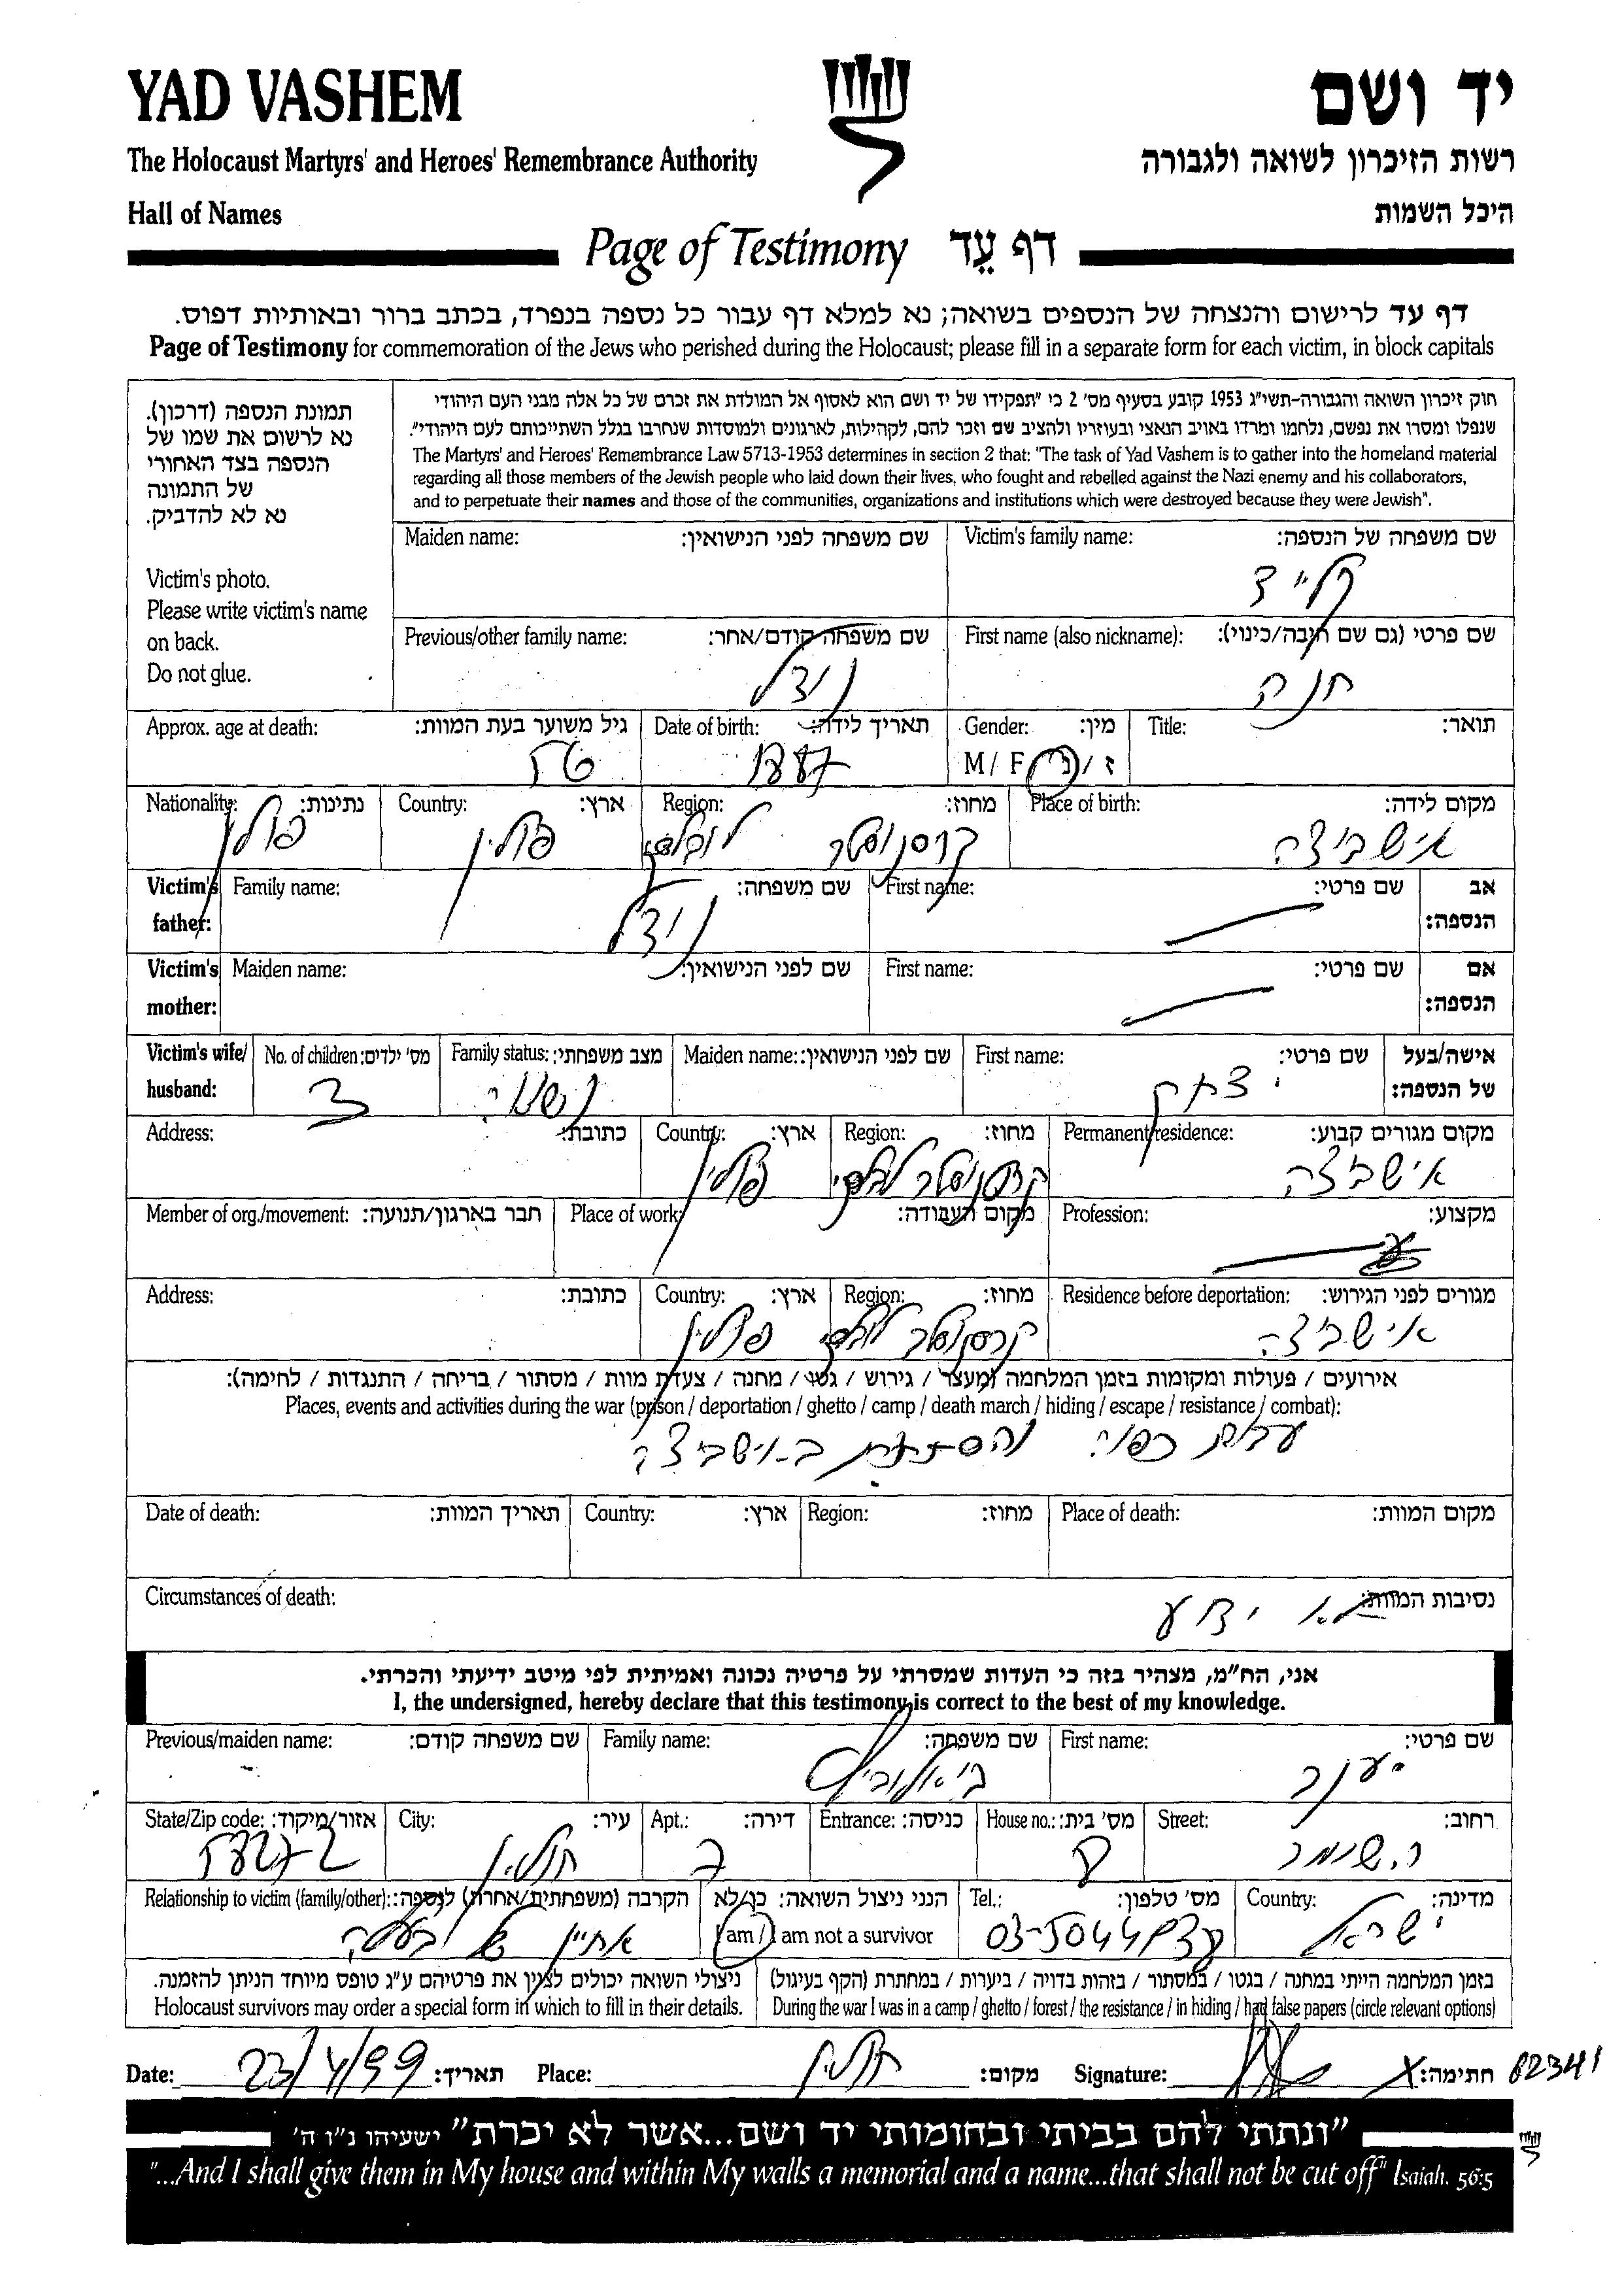 YAD VASHEM
יד ושם
The Holocaust Martyrs' and Heroes' Remembrance Authority
רשות הזיכרון לשואה ולגבורה
Hall of Names
היכל השמות
Page of Testimony דף עֵד
דף עד לרישום והנצחה של הנספים בשואה; נא למלא דף עבור כל נספה בנפרד, בכתב ברור ובאותיות דפוס.
Page of Testimony for commemoration of the Jews who perished during the Holocaust; please fill in a separate form for each victim, in block capitals
תמונת הנספה (דרכון).
נא לרשום את שמו של
הנספה בצד האחורי
של התמונה
נא לא להדביק.
Victim's photo.
Please write victim's name
on back.
Do not glue.
חוק זיכרון השואה והגבורה-תשי"ג 1953 קובע בסעיף מס' 2 כי "תפקידו של יד ושם הוא לאסוף אל המולדת את זכרם של כל אלה מבני העם היהודי
שנפלו ומסרו את נפשם, נלחמו ומרדו באויב הנאצי ובעוזריו ולהציב שם וזכר להם, לקהילות, לארגונים ולמוסדות שנחרבו בגלל השתייכותם לעם היהודי".
The Martyrs' and Heroes' Remembrance Law 5713-1953 determines in section 2 that: "The task of Yad Vashem is to gather into the homeland material
regarding all those members of the Jewish people who laid down their lives, who fought and rebelled against the Nazi enemy and his collaborators,
and to perpetuate their names and those of the communities, organizations and institutions which were destroyed because they were Jewish".
Maiden name: שם משפחה לפני הנישואין: Victim's family name: שם משפחה של הנספה:
Previous/other family name: שם משפחה קודם/אחר: First name (also nickname): שם פרטי (גם שם חיבה/כינוי):
חנה
Approx. age at death: גיל משוער בעת המוות: Date of birth: תאריך לידה: Gender: מין: Title: תואר:
1887 M / F ז / נ
Nationality: נתינות: Country: ארץ: Region: מחוז: Place of birth: מקום לידה:
פולין פולין לובלסקי קרסנוסטב איזביצה
Victim's father: Family name: שם משפחה: First name: שם פרטי: אב הנספה:
Victim's mother: Maiden name: שם לפני הנישואין: First name: שם פרטי: אם הנספה:
Victim's wife/ husband: No. of children: מס' ילדים: Family status: מצב משפחתי: Maiden name: שם לפני הנישואין: First name: שם פרטי: אישה/בעל של הנספה:
3 נשואה יצחק
Address: כתובת: Country: ארץ: Region: מחוז: Permanent residence: מקום מגורים קבוע:
פולין קרסנוסטב לובלסקי איזביצה
Member of org./movement: חבר בארגון/תנועה: Place of work: מקום העבודה: Profession: מקצוע:
Address: כתובת: Country: ארץ: Region: מחוז: Residence before deportation: מגורים לפני הגירוש:
פולין קרסנוסטב לובלסקי איזביצה
אירועים / פעולות ומקומות בזמן המלחמה (מעצר / גירוש / גטו / מחנה / צעדת מוות / מסתור / בריחה / התנגדות / לחימה):
Places, events and activities during the war (prison / deportation / ghetto / camp / death march / hiding / escape / resistance / combat):
עבודת כפיה והסתתרות באיזביצה
Date of death: תאריך המוות: Country: ארץ: Region: מחוז: Place of death: מקום המוות:
Circumstances of death: נסיבות המוות:
לא ידוע
אני, הח"מ, מצהיר בזה כי העדות שמסרתי על פרטיה נכונה ואמיתית לפי מיטב ידיעתי והכרתי.
I, the undersigned, hereby declare that this testimony is correct to the best of my knowledge.
Previous/maiden name: שם משפחה קודם: Family name: שם משפחה: First name: שם פרטי:
State/Zip code: אזור/מיקוד: City: עיר: Apt.: דירה: Entrance: כניסה: House no.: מס' בית: Street: רחוב:
חולון
Relationship to victim (family/other): הקרבה (משפחתית/אחרת) לנספה: הנני ניצול השואה: כן/לא Tel.: מס' טלפון: Country: מדינה:
אחיין של בעלה I am / I am not a survivor ישראל
ניצולי השואה יכולים לציין את פרטיהם ע"ג טופס מיוחד הניתן להזמנה. בזמן המלחמה הייתי במחנה / בגטו / במסתור / בזהות בדויה / ביערות / במחתרת (הקף בעיגול)
Holocaust survivors may order a special form in which to fill in their details. During the war I was in a camp / ghetto / forest / the resistance / in hiding / had false papers (circle relevant options)
Date: 23/4/99 תאריך: Place: חולון מקום: Signature: חתימה: 82341
"ונתתי להם בביתי ובחומותי יד ושם...אשר לא יכרת" ישעיהו נ"ו ה'
"...And I shall give them in My house and within My walls a memorial and a name...that shall not be cut off" Isaiah. 56:5